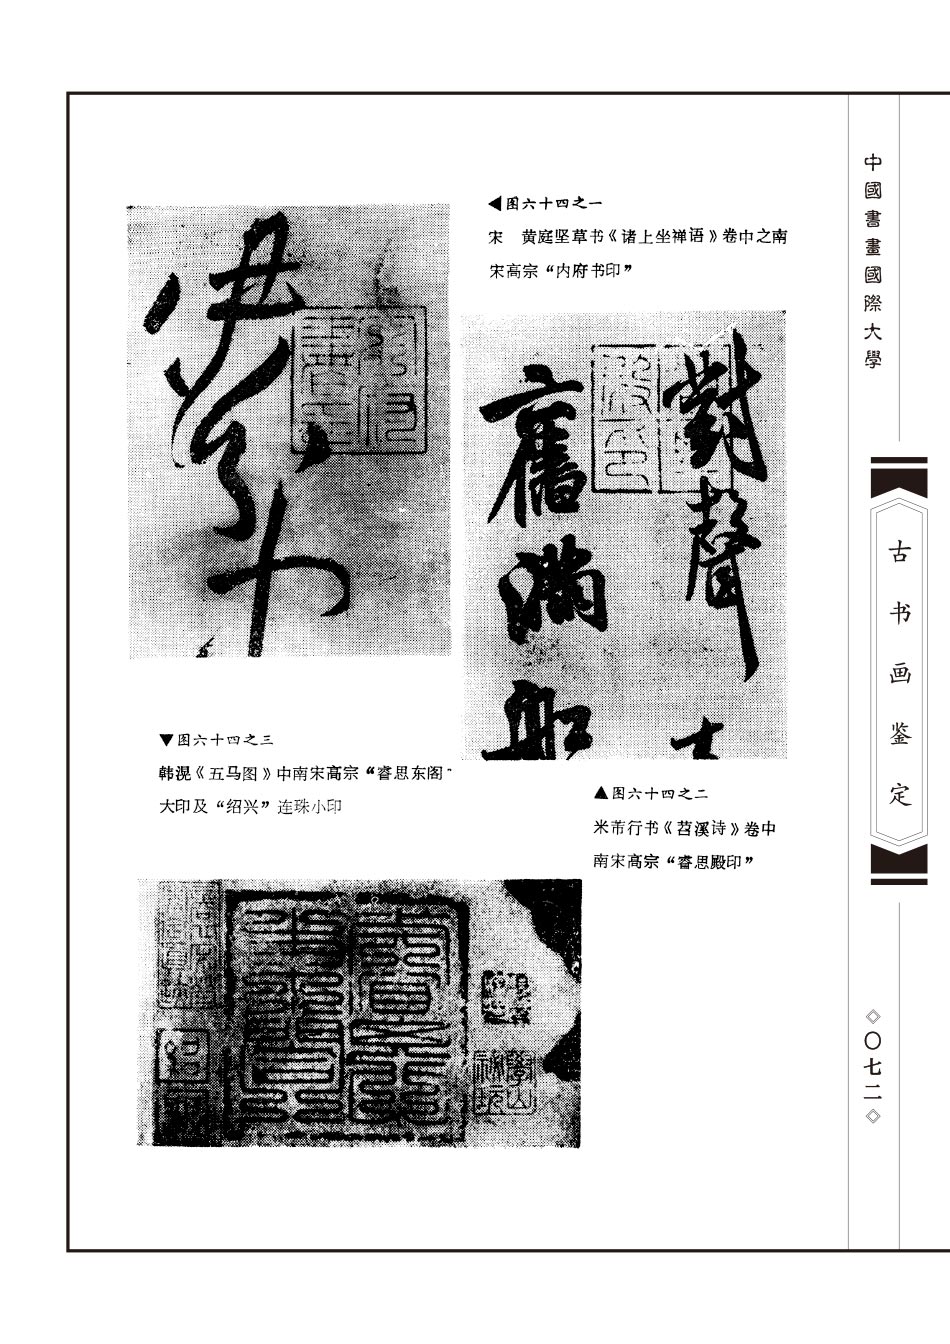 中國書畫國際大學
古书画鉴定
〇七二
◀图六十四之一
宋　黄庭坚草书《诸上坐禅语》卷中之南
宋高宗“内府书印”
對
聲
舊
滿
船
▼图六十四之三
韩滉《五马图》中南宋高宗“睿思东阁”
大印及“绍兴”连珠小印
▲图六十四之二
米芾行书《苕溪诗》卷中
南宋高宗“睿思殿印”